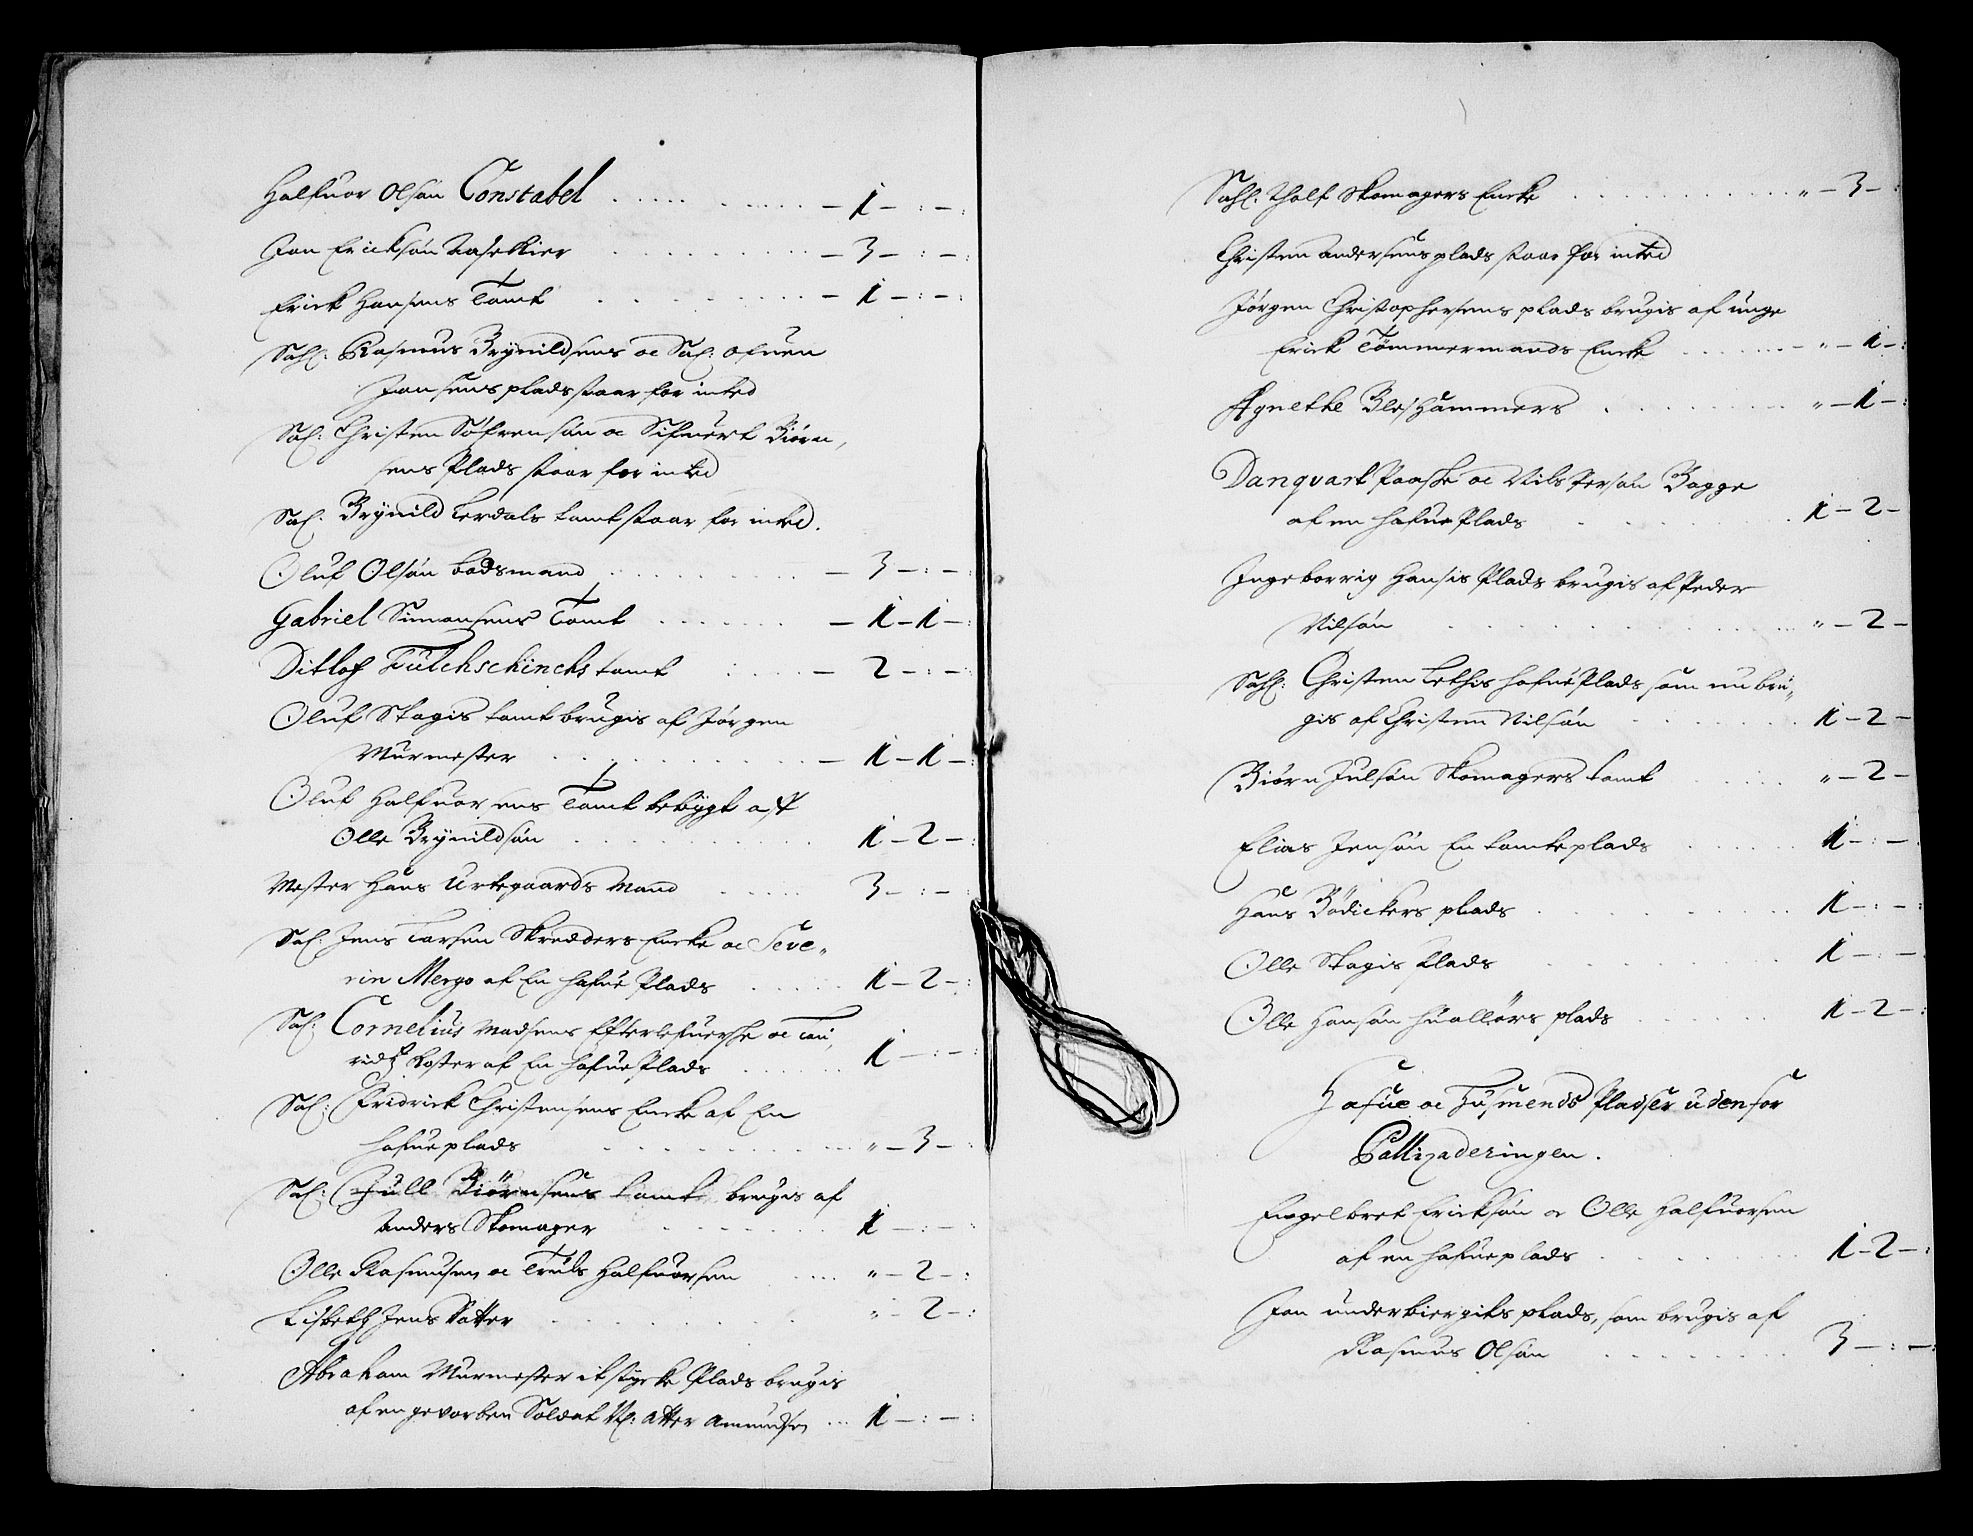 Halfuor Olsøn Constabel . . . . . . . . . – 1 – : – :
Jon Erichsøn . . . . . . – 3 – : – :
Erick Hansens Tomt . . . . . . – 1 – : – :
Sahl: Rasmus Brynildsens oc Sal: Ofuen
Jonsens plads staar for inted
Sal: Christen Søfrensøn oc Sifuert Biørn,
sens Plads staar for inted
Sal: Brynild Lerdals tomt staar for inted.
Oluf Olsøn Bodsmand . . . . . . – 3 – : – :
Gabriel Simonsens Tomt . . . . . – 1 – 1 – :
Ditlof tomt . . . . – 2 – : – :
Oluf Skogis tomt brugis af Jørgen
Murmester . . . . . . . – 1 – 1 – :
Oluf Halfuorsens Tomt bebygt af
Olle Brynildsøn . . . . . . 1 – 2 – :
Mester Hans Urtegaards Mand . . . . 3 – : – :
Sal: Jens Larsen Skredders Encke oc Seve„
rin Mergo af En hafue Plads . . . . . 1 – 2 – :
Sal: Cornelius Madsens Efterlefuerske oc Lau
ridz af En hafue Plads . . . . . 1 – : – :
Sal: Fridrick Christensens Encke af En
hafue plads . . . . . . . „ – 3 – :
Sal: Gull Biørnsens tomt, brugis af
Anders Skomager . . . . . 1 – : – :
Olle Rasmusen oc Truls Halfuorsen . . . . „ – 2 – :
Lisbeth Jens Dotter . . . . . . „ – 2 – :
Abraham Murmester it stycke Plads brugis
af en gevorben Soldat N: Atter Amundsen . . . 1 – : – :
Sahl: Tholf Skomagers Encke . . . . . . „ – 3 – :
Christen Andersens plads staar for inted
Jørgen Christophersens plads brugis af unge
Erick Tømmermands Encke . . . . . – „ – 1 – :
Agnethe Bleshammers . . . . . „ – 1 – :
Danquart Paaske oc Nils Persøn Bagge
af en hafue Plads . . . . . 1 – 2 –
Ingeborrig Hansis Plads brugis af Peder
Nilsøn . . . . . . . „ – 2 –
Sahl: Christen Lethis hafue Plads som nu bru„
gis af Christen Nilsøn . . . . . 1 – 2 –
Biørn Julsøn Skomagers tomt . . . . „ – 2 –
Elias Jensøn En tomteplads . . . . . 1 – : – :
Hans Bødickers plads . . . . . . 1 – : – :
Olle Skogis Plads . . . . . 1 – : – :
Olle Hansøn plads . . . . . 1 – 2 – :
Hafue oc Pladser uden for
Pallizaderingen.
Engelbret Ericksøn oc Olle Halfuorsen
af en hafue plads . . . . . 1 – 2 – :
Jon underbiergits plads, som brugis af
Rasmus Olsøn . . . . . 3 – : – :